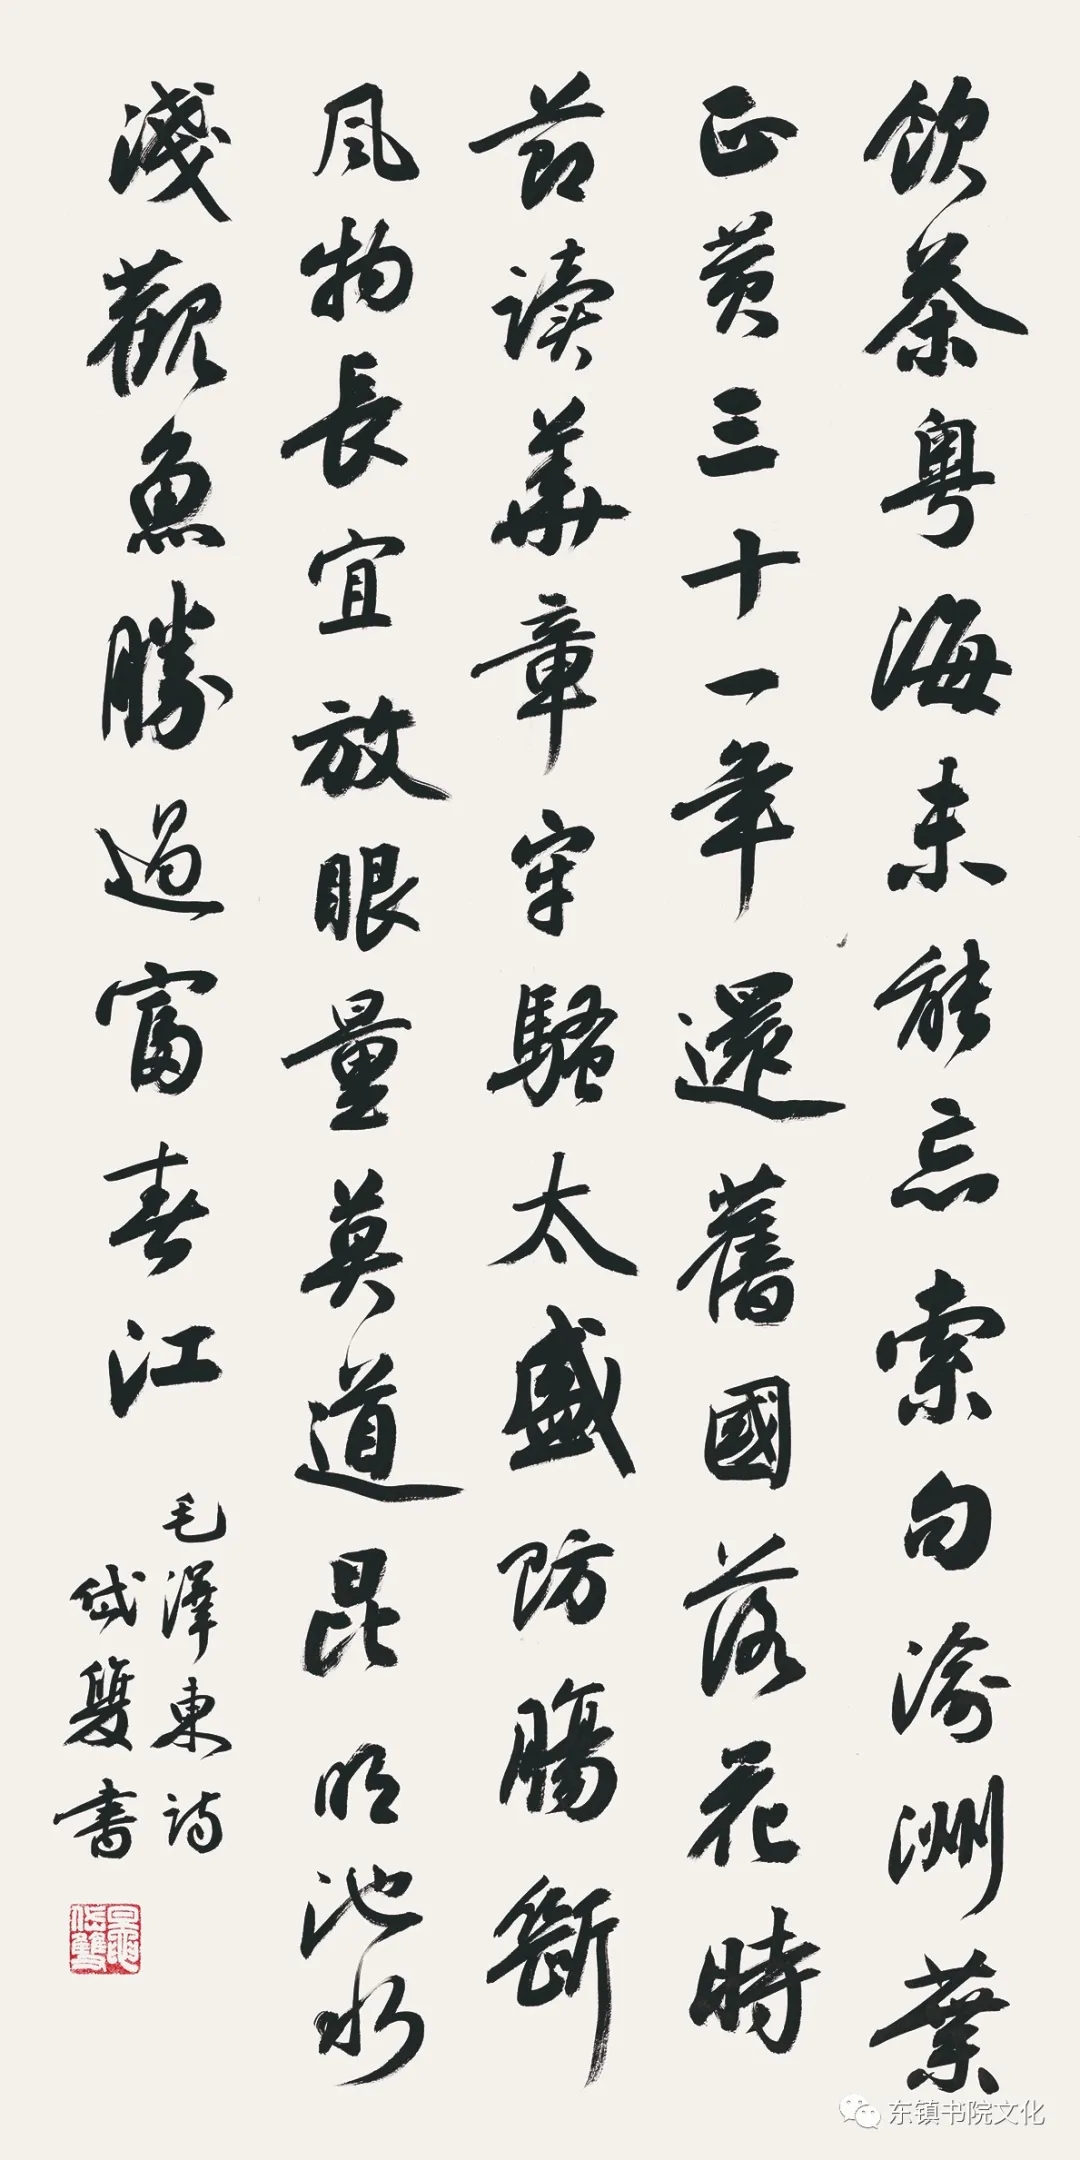 飲茶粤海未能忘索句渝洲葉
正黄三十一年還舊國落花時
节读華章牢騷太盛防腸斷
風物長宜放眼量莫道昆明池水
淺觀魚勝過富春江
毛澤東詩
岱雙書
岱雙
东镇书院文化